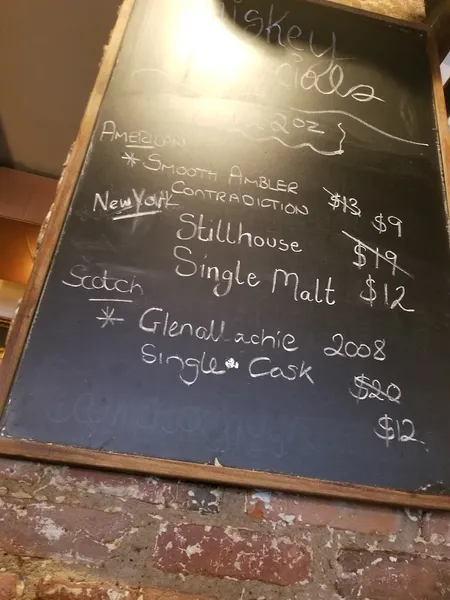 Whiskey
Specials
2oz
AMERICAN
* SMOOTH AMBLER
CONTRADICTION $13 $9
New York
Stillhouse $19
Single Malt $12
Scotch
* Glenallachie 2008
Single Cask $20
$12